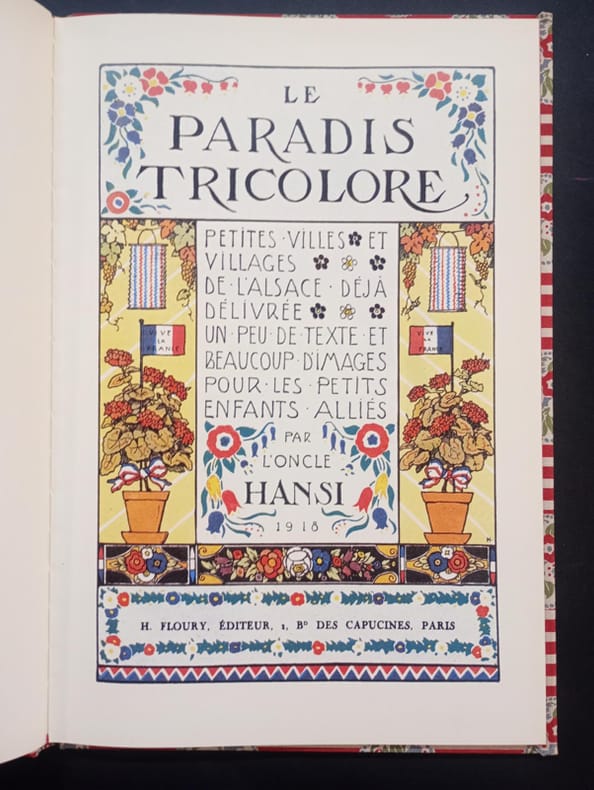 LE
PARADIS
TRICOLORE
PETITES·VILLES ET
VILLAGES
DE·L'ALSACE·DÉJÀ
DÉLIVRÉE
UN·PEU·DE·TEXTE·ET
BEAUCOUP·D'IMAGES
POUR·LES·PETITS
ENFANTS·ALLIÉS
PAR
L'ONCLE
HANSI
1918
VIVE
LA
FRANCE
VIVE
LA
FRANCE
H
H. FLOURY, ÉDITEUR, 1, Bᴰ DES CAPUCINES, PARIS